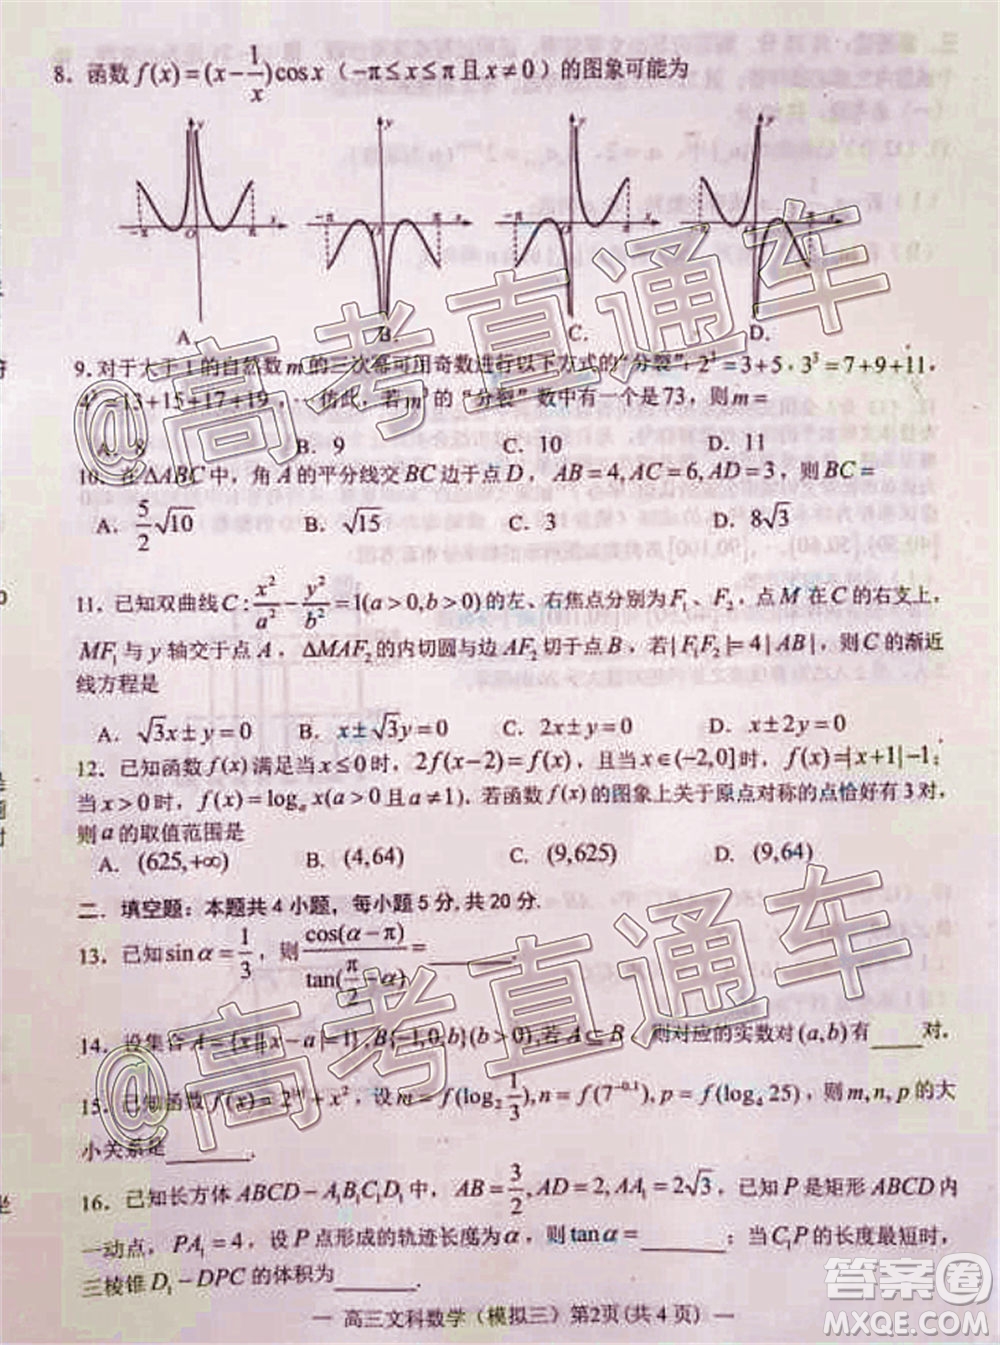 8. 函数 f(x)=(x-1/x)cosx（-π≤x≤π且x≠0）的图象可能为
y y y y
-π O π x -π O π x -π O π x -π O π x
A. B. C. D.
9.对于大于1的自然数m的三次幂可用奇数进行以下方式的“分裂”：2³=3+5，3³=7+9+11，
4³=13+15+17+19，…仿此，若m³的“分裂”数中有一个是73，则m=
A. 8 B. 9 C. 10 D. 11
10. 在ΔABC中，角A的平分线交BC边于点D，AB=4,AC=6,AD=3，则BC=
A. 5/2√10 B. √15 C. 3 D. 8√3
11.已知双曲线C:x²/a²-y²/b²=1(a>0,b>0)的左、右焦点分别为F₁、F₂，点M在C的右支上，
MF₁与y轴交于点A，ΔMAF₂的内切圆与边AF₂切于点B，若|F₁F₂|=4|AB|，则C的渐近
线方程是
A. √3x±y=0 B. x±√3y=0 C. 2x±y=0 D. x±2y=0
12. 已知函数f(x)满足当x≤0时，2f(x-2)=f(x)，且当x∈(-2,0]时，f(x)=|x+1|-1；
当x>0时，f(x)=logₐx(a>0且a≠1).若函数f(x)的图象上关于原点对称的点恰好有3对，
则a的取值范围是
A. (625,+∞) B. (4,64) C. (9,625) D. (9,64)
二. 填空题：本题共4小题，每小题5分,共20分.
13. 已知sinα=1/3，则cos(α-π)/tan(π/2-α)=______.
14. 设集合A={x||x-a|=1},B{-1,0,b}(b>0),若A⊆B，则对应的实数对(a,b)有____对.
15. 已知函数f(x)=2^|x|+x²，设m=f(log₂1/3),n=f(7^-0.1),p=f(log₄25)，则m,n,p的大
小关系是______.
16. 已知长方体ABCD-A₁B₁C₁D₁中，AB=3/2,AD=2,AA₁=2√3，已知P是矩形ABCD内
一动点，PA₁=4，设P点形成的轨迹长度为α，则tanα=______；当C₁P的长度最短时，
三棱锥D₁-DPC的体积为______.
— 高三文科数学（模拟三）第2页(共4页) —
@高考直通车
@高考直通车
答案卷
MXQE.COM